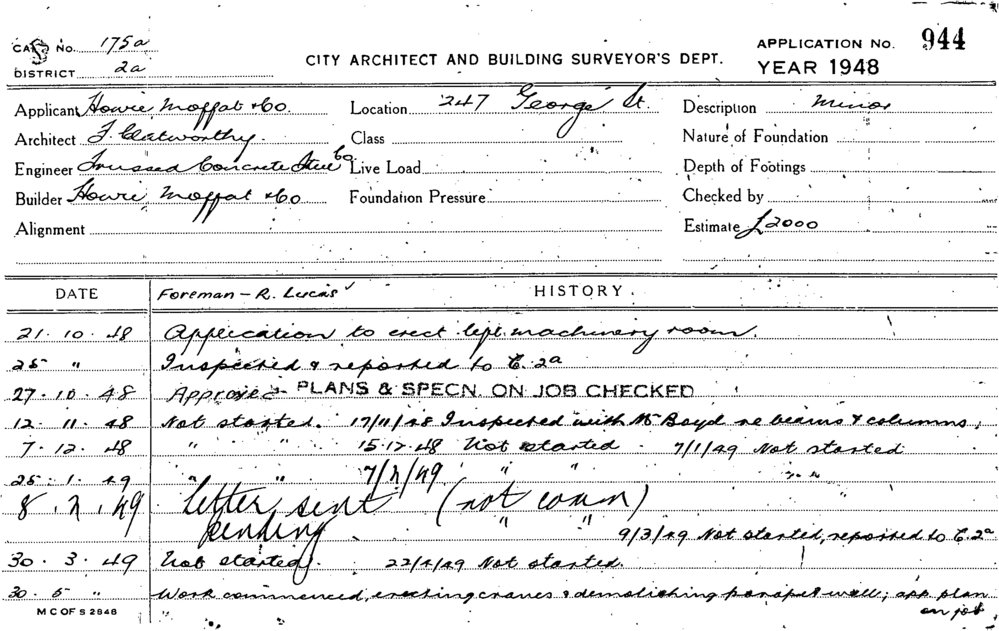 CARD No. 175a
DISTRICT 2a
CITY ARCHITECT AND BUILDING SURVEYOR'S DEPT.
APPLICATION No. 944
YEAR 1948
Applicant Howie, Moffat & Co. Location 247 George St. Description Minor
Architect F. Clatworthy. Class Nature of Foundation
Engineer Trussed Concrete Steel Co Live Load Depth of Footings
Builder Howie, Moffat & Co Foundation Pressure Checked by
Alignment Estimate £2000
DATE Foreman - R. Lucas HISTORY
21.10.48 Application to erect lift machinery room.
25 " Inspected & reported to C.2a
27.10.48 Approved PLANS & SPECN. ON JOB CHECKED
12.11.48 Not started. 17/11/48 Inspected with Mr Boyd re beams & columns,
7.12.48 " " 15.12.48 Not started 7/1/49 Not started
25.1.49 " " 7/2/49 " "
8.2.49 Letter sent (not comm)
pending " "
9/3/49 Not started, reported to C.2a
30.3.49 Not started. 22/4/49 Not started.
30.5 " Work commenced, erecting cranes & demolishing parapet wall; app plan
on job.
M C OF S 2848